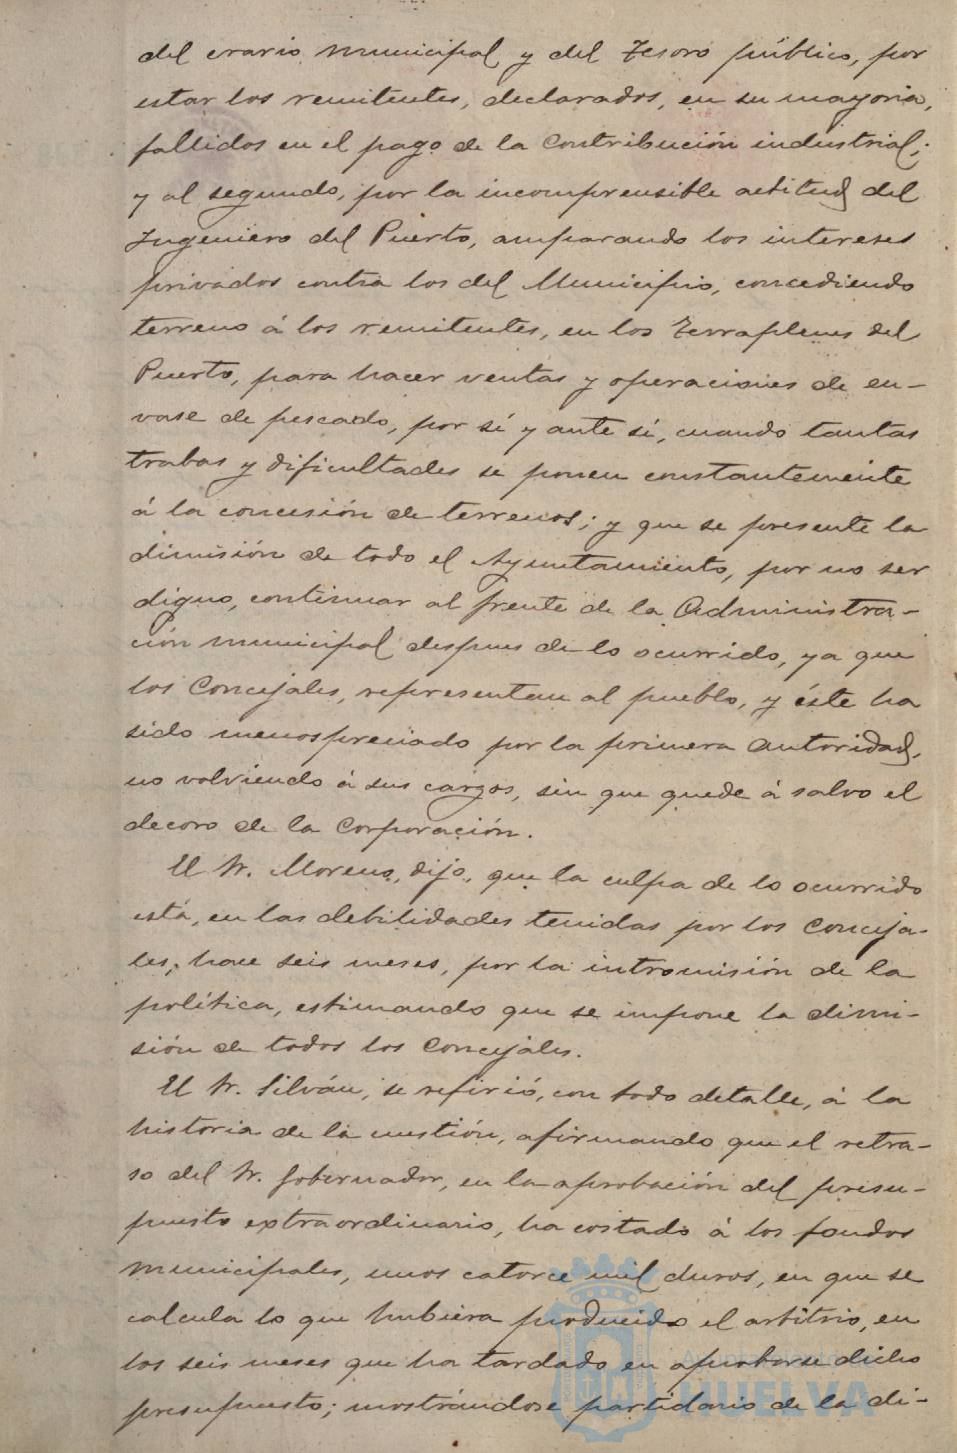 del erario municipal y del Tesoro público, por
estar los remitentes, declarados, en su mayoria,
fallidos en el pago de la Contribución industrial;
y al segundo, por la incomprensible actitud del
Ingeniero del Puerto, amparando los intereses
privados contra los del Municipio, concediendo
terreno á los remitentes, en los Terraplenes del
Puerto, para hacer ventas y operaciones de en-
vase de pescado, por sí y ante sí, cuando tantas
trabas y dificultades se ponen constantemente
á la concesión de terrenos; y que se presente la
dimisión de todo el Ayuntamiento, por no ser
digno, continuar al frente de la Administra-
ción municipal despues de lo ocurrido, ya que
los Concejales, representan al pueblo, y éste ha
sido menospreciado por la primera autoridad,
no volviendo á sus cargos, sin que quede á salvo el
decoro de la Corporación.
El Sr. Moreno, dijo, que la culpa de lo ocurrido
está, en las debilidades tenidas por los Conceja-
les, hace seis meses, por la intromisión de la
política, estimando que se impone la dimi-
sión de todos los Concejales.
El Sr. Silván, se refirió, con todo detalle, á la
historia de la cuestión, afirmando que el retra-
so del Sr. Gobernador, en la aprobación del presu-
puesto extraordinario, ha costado á los fondos
municipales, unos catorce mil duros, en que se
calcula lo que hubiera producido el arbitrio, en
los seis meses que ha tardado en aprobarse dicho
presupuesto; mostrándose partidario de la di-
Ayuntamiento de
HUELVA